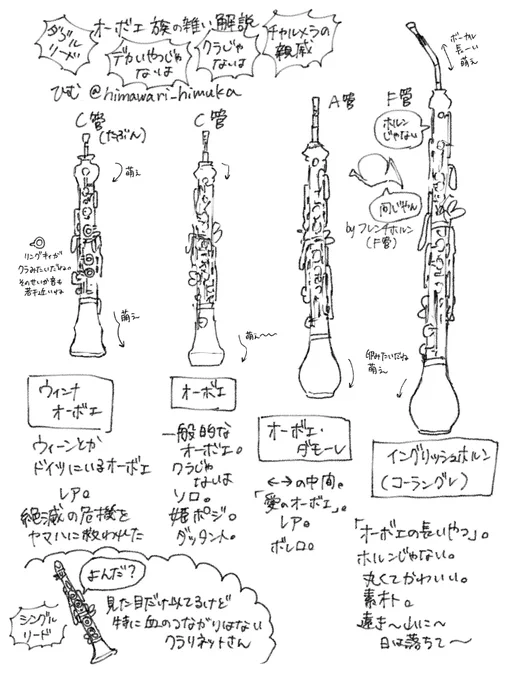 オーボエ族の雑い解説
ダブル
リード
デカいやつじゃ
ないよ
クラじゃ
ないよ
チャルメラの
親戚
ひむ @himawari_himuka
C管
(たぶん)
萌え
リングキィが
クラみたいだよね
そのせいか音も
若干近いね
萌え
C管
萌え〜
A管
F管
ボーカル
長ーい
萌え
ホルン
じゃない
同じやん
by フレンチホルン
(F管)
卵みたいだね
萌え
ウィンナ
オーボエ
ウィーンとか
ドイツにいるオーボエ
レア。
絶滅の危機を
ヤマハに救われた
オーボエ
一般的な
オーボエ。
クラじゃ
ないよ
ソロ。
姫ポジ。
ダッタント。
オーボエ・
ダモーレ
←→の中間。
「愛のオーボエ」。
レア。
ボレロ。
イングリッシュホルン
(コーラングレ)
「オーボエの長いやつ」。
ホルンじゃない。
丸くてかわいい。
素朴。
遠き〜山に〜
日は落ちて〜
よんだ?
シングル
リード
見た目だけ似てるけど
特に血のつながりはない
クラリネットさん